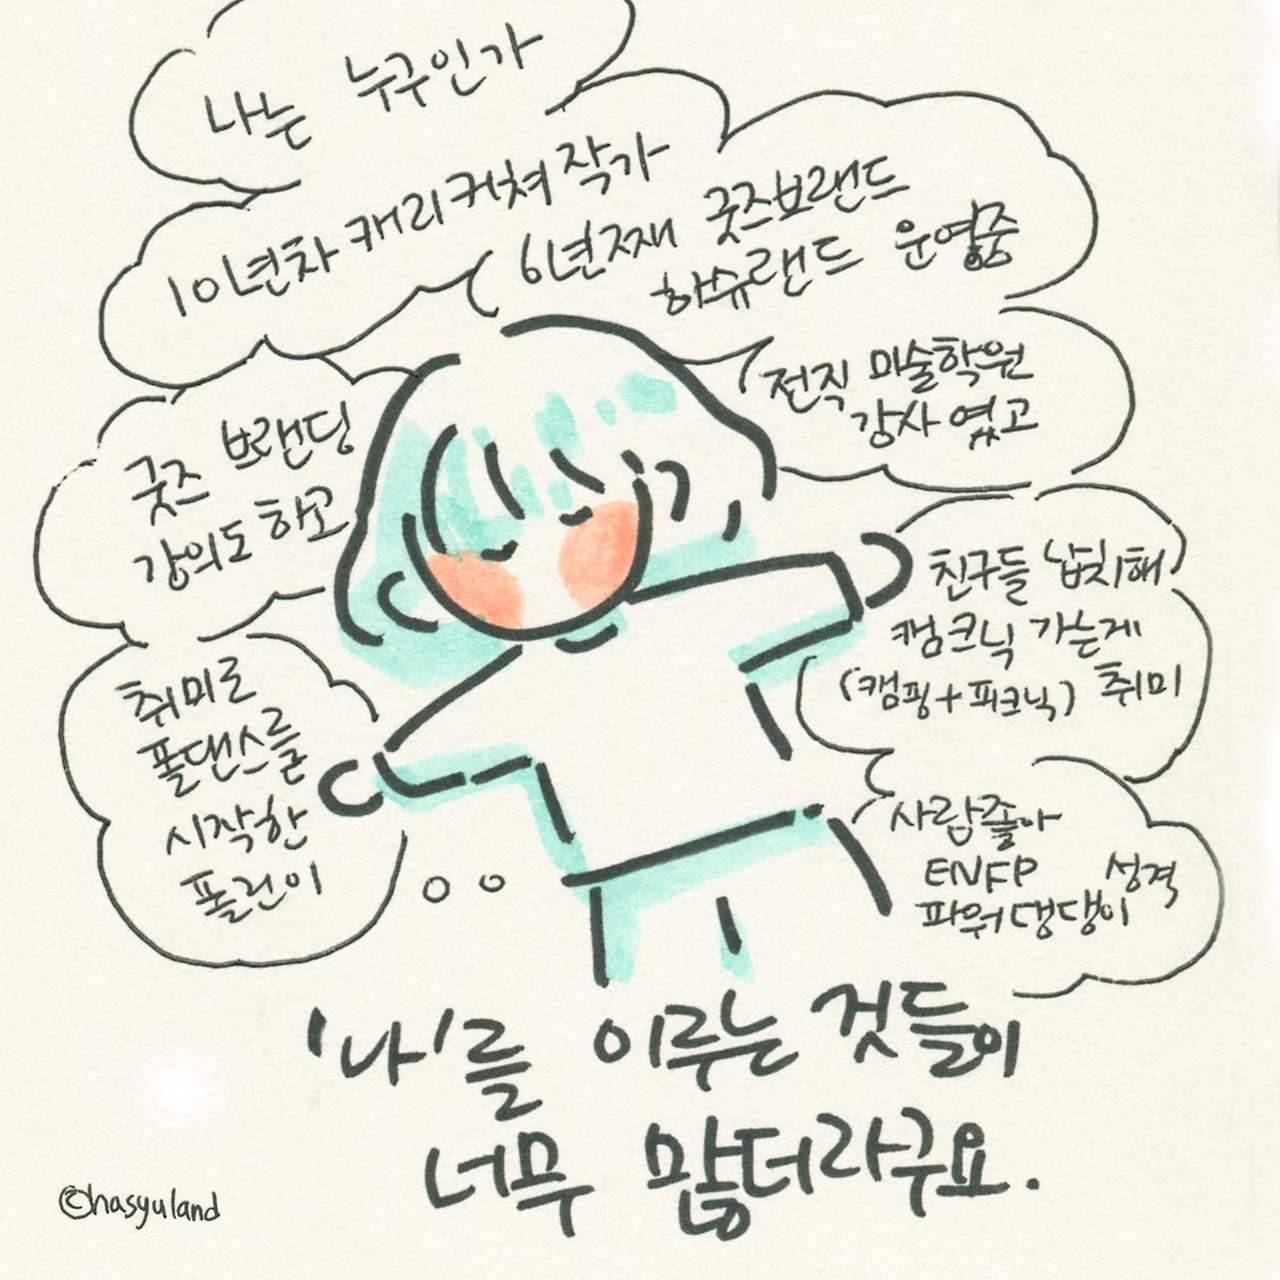 나는 누구인가
10년차 캐리커쳐 작가
6년째 굿즈브랜드
하슈랜드 운영중
전직 미술학원
강사 였고
굿즈 브랜딩
강의도 하고
친구들 납치해
캠크닉 가는게
(캠핑+피크닉) 취미
취미로
폴댄스를
시작한
폴린이
사람좋아
ENFP 성격
파워댕댕이
'나'를 이루는 것들이
너무 많더라구요.
©hasyuland